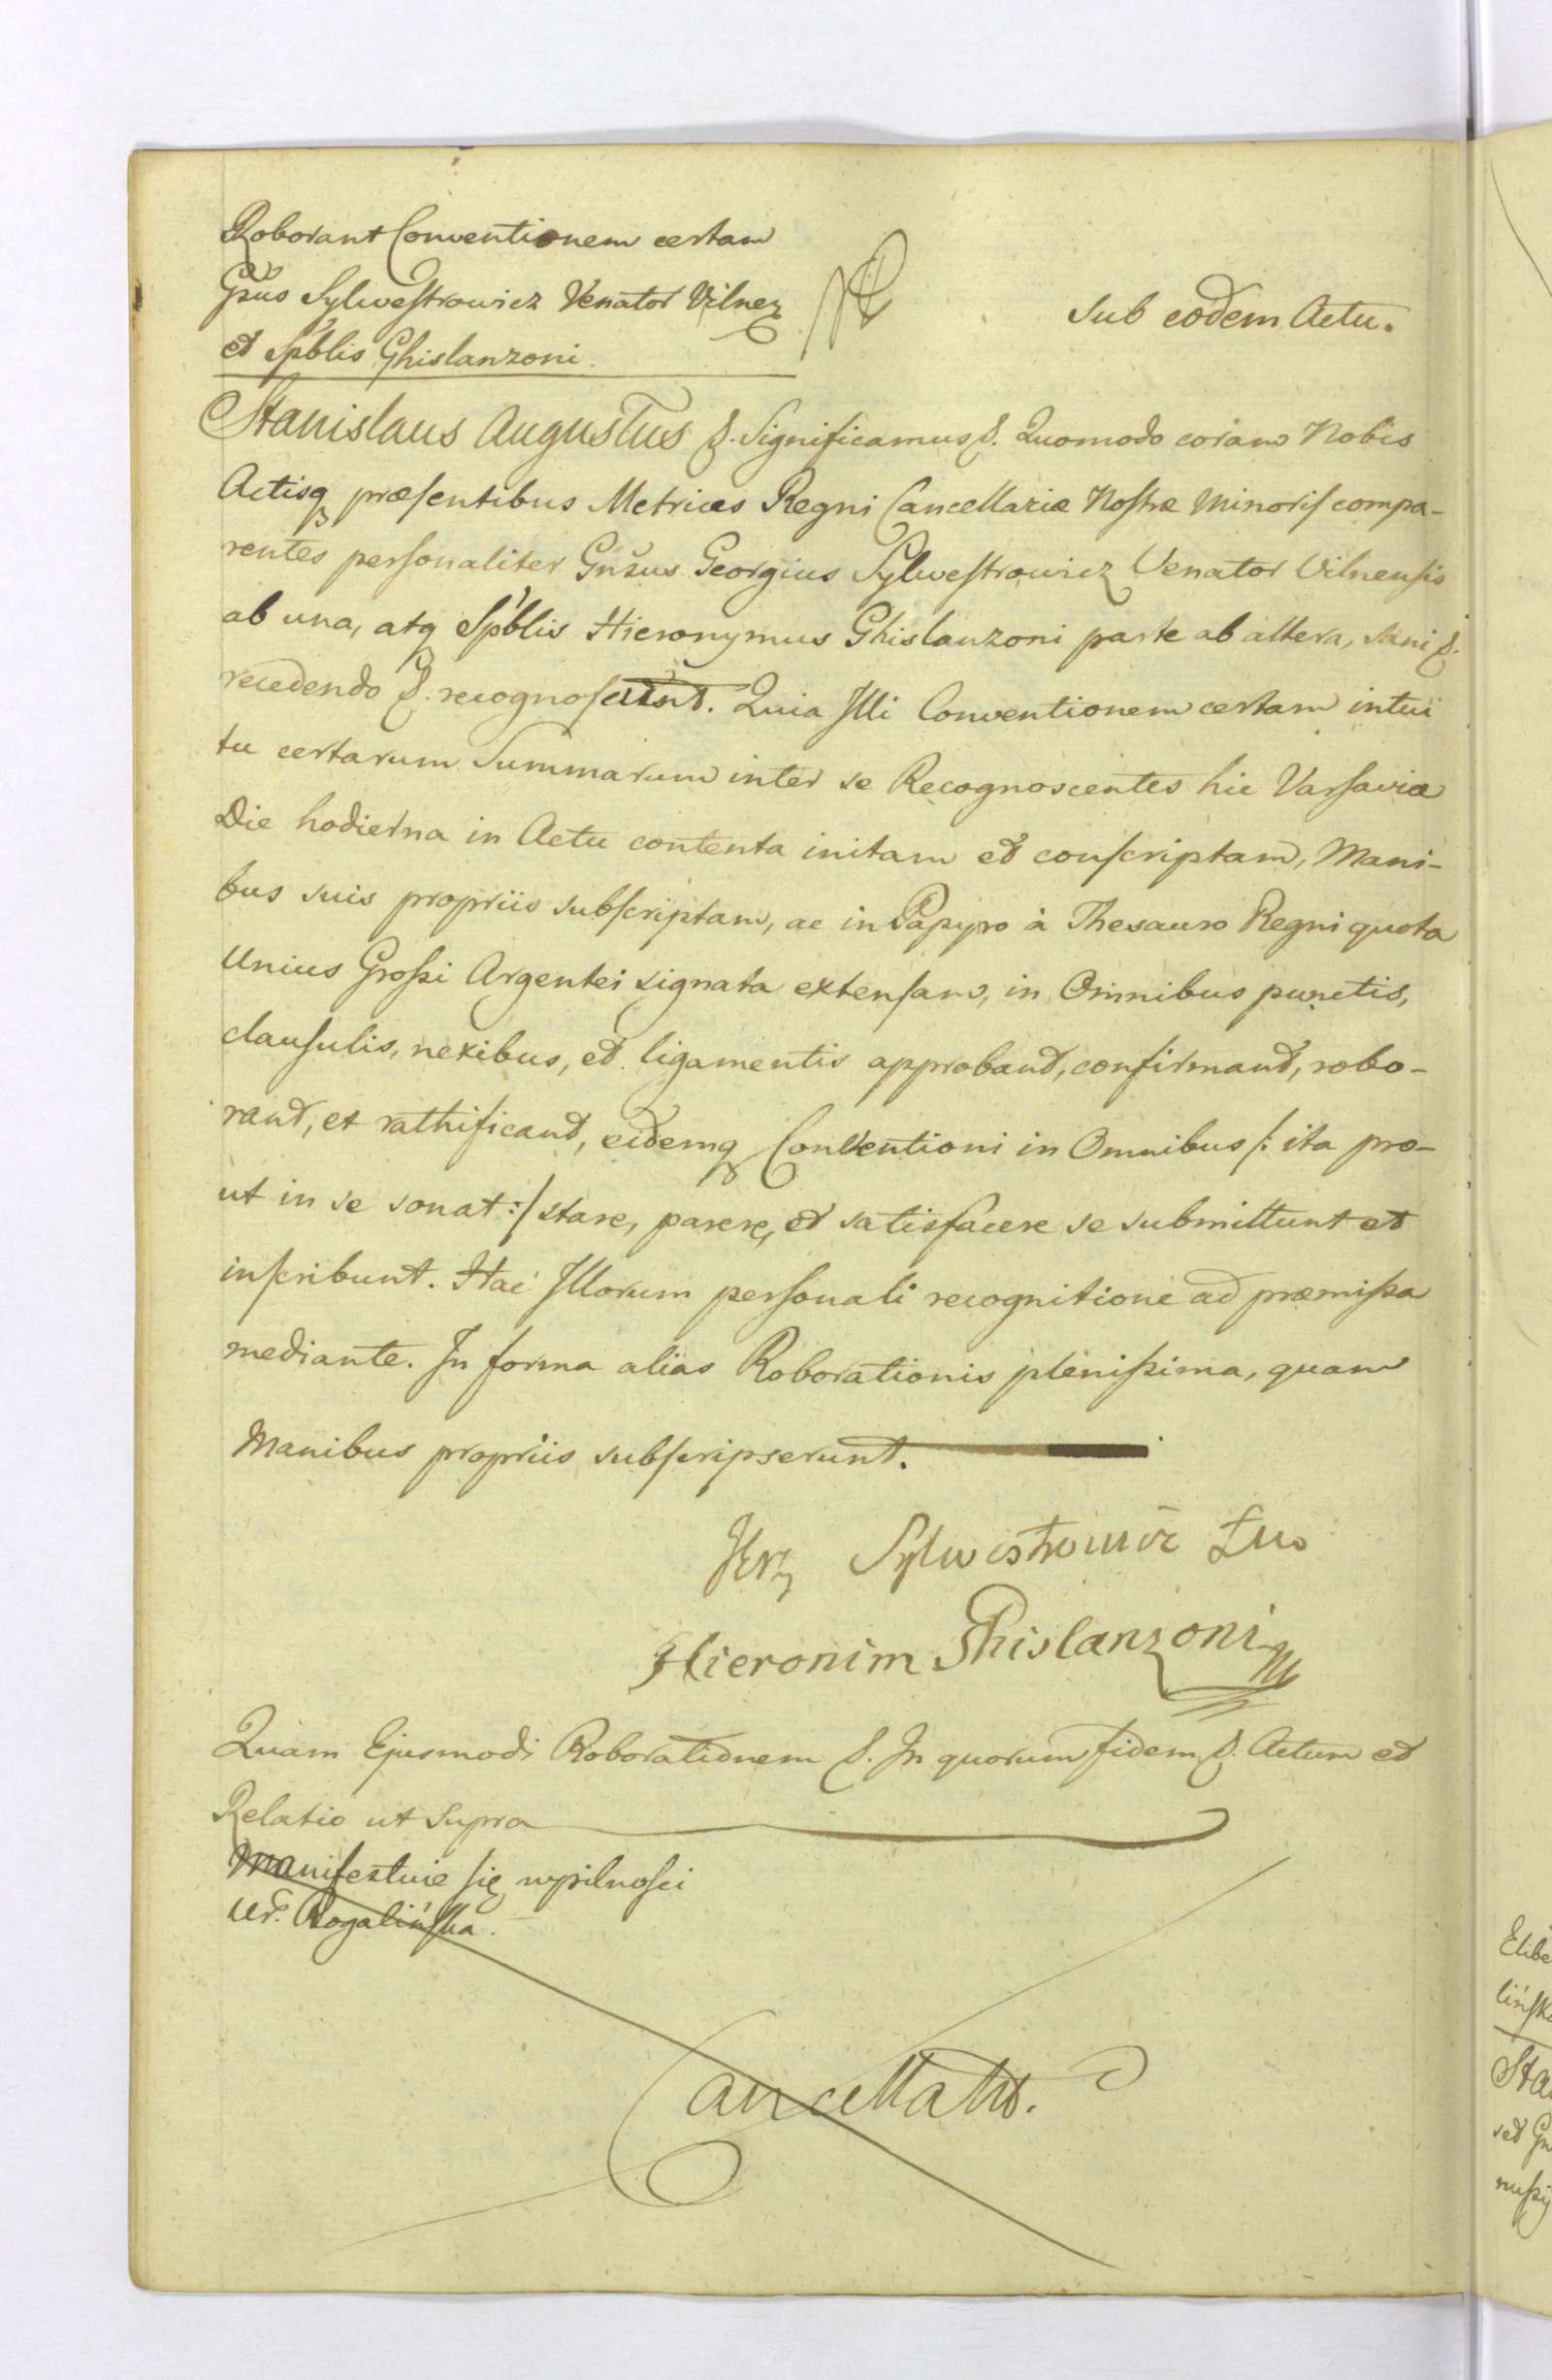 Roborant Conventionem certam
Gn̄sus Sylwestrowicz Venator Vilnen
et Spb̄lis Ghislanzoni.
Sub eodem Actu.
Stanislaus Augustus &. Significamus &. Quomodo coram Nobis
Actisq præsentibus Metrices Regni Cancellariæ Nostræ Minoris compa-
rentes personaliter Gn̄sus Georgius Sylwestrowicz Venator Vilnensis
ab una, atq Spb̄lis Hieronymus Ghislanzoni parte ab altera, sani &.
recedendo &. recognoscunt. Quia Illi Conventionem certam intui
tu certarum Summarum inter se Recognoscentes hic Varsaviæ
Die hodierna in Actu contenta initam et conscriptam, Mani-
bus suis propriis subscriptam, ac in Papyro à Thesauro Regni quota
Unius Grossi Argentei signata extensam, in Omnibus punctis,
clausulis, nexibus, et ligamentis approbant, confirmant, robo-
rant, et rathificant, eidemq Conventioni in Omnibus /: ita pro-
ut in se sonat :/ stare, parere, et satisfacere se submittunt et
inscribunt. Hac Illorum personali recognitione ad præmissa
mediante. In forma alias Roborationis plenissima, quam
Manibus propriis subscripserunt.
Jerzy Sylwestrowicz Łu
Hieronim Ghislanzoni
Quam Ejusmodi Roborationem &. In quorum fidem &. Actum et
Relatio ut Supra
Manifestuie się wpilnosci
Ur. Rogalińska.
Cancellatt.
Elibe
lińsk
Sta
set Gn
nussy